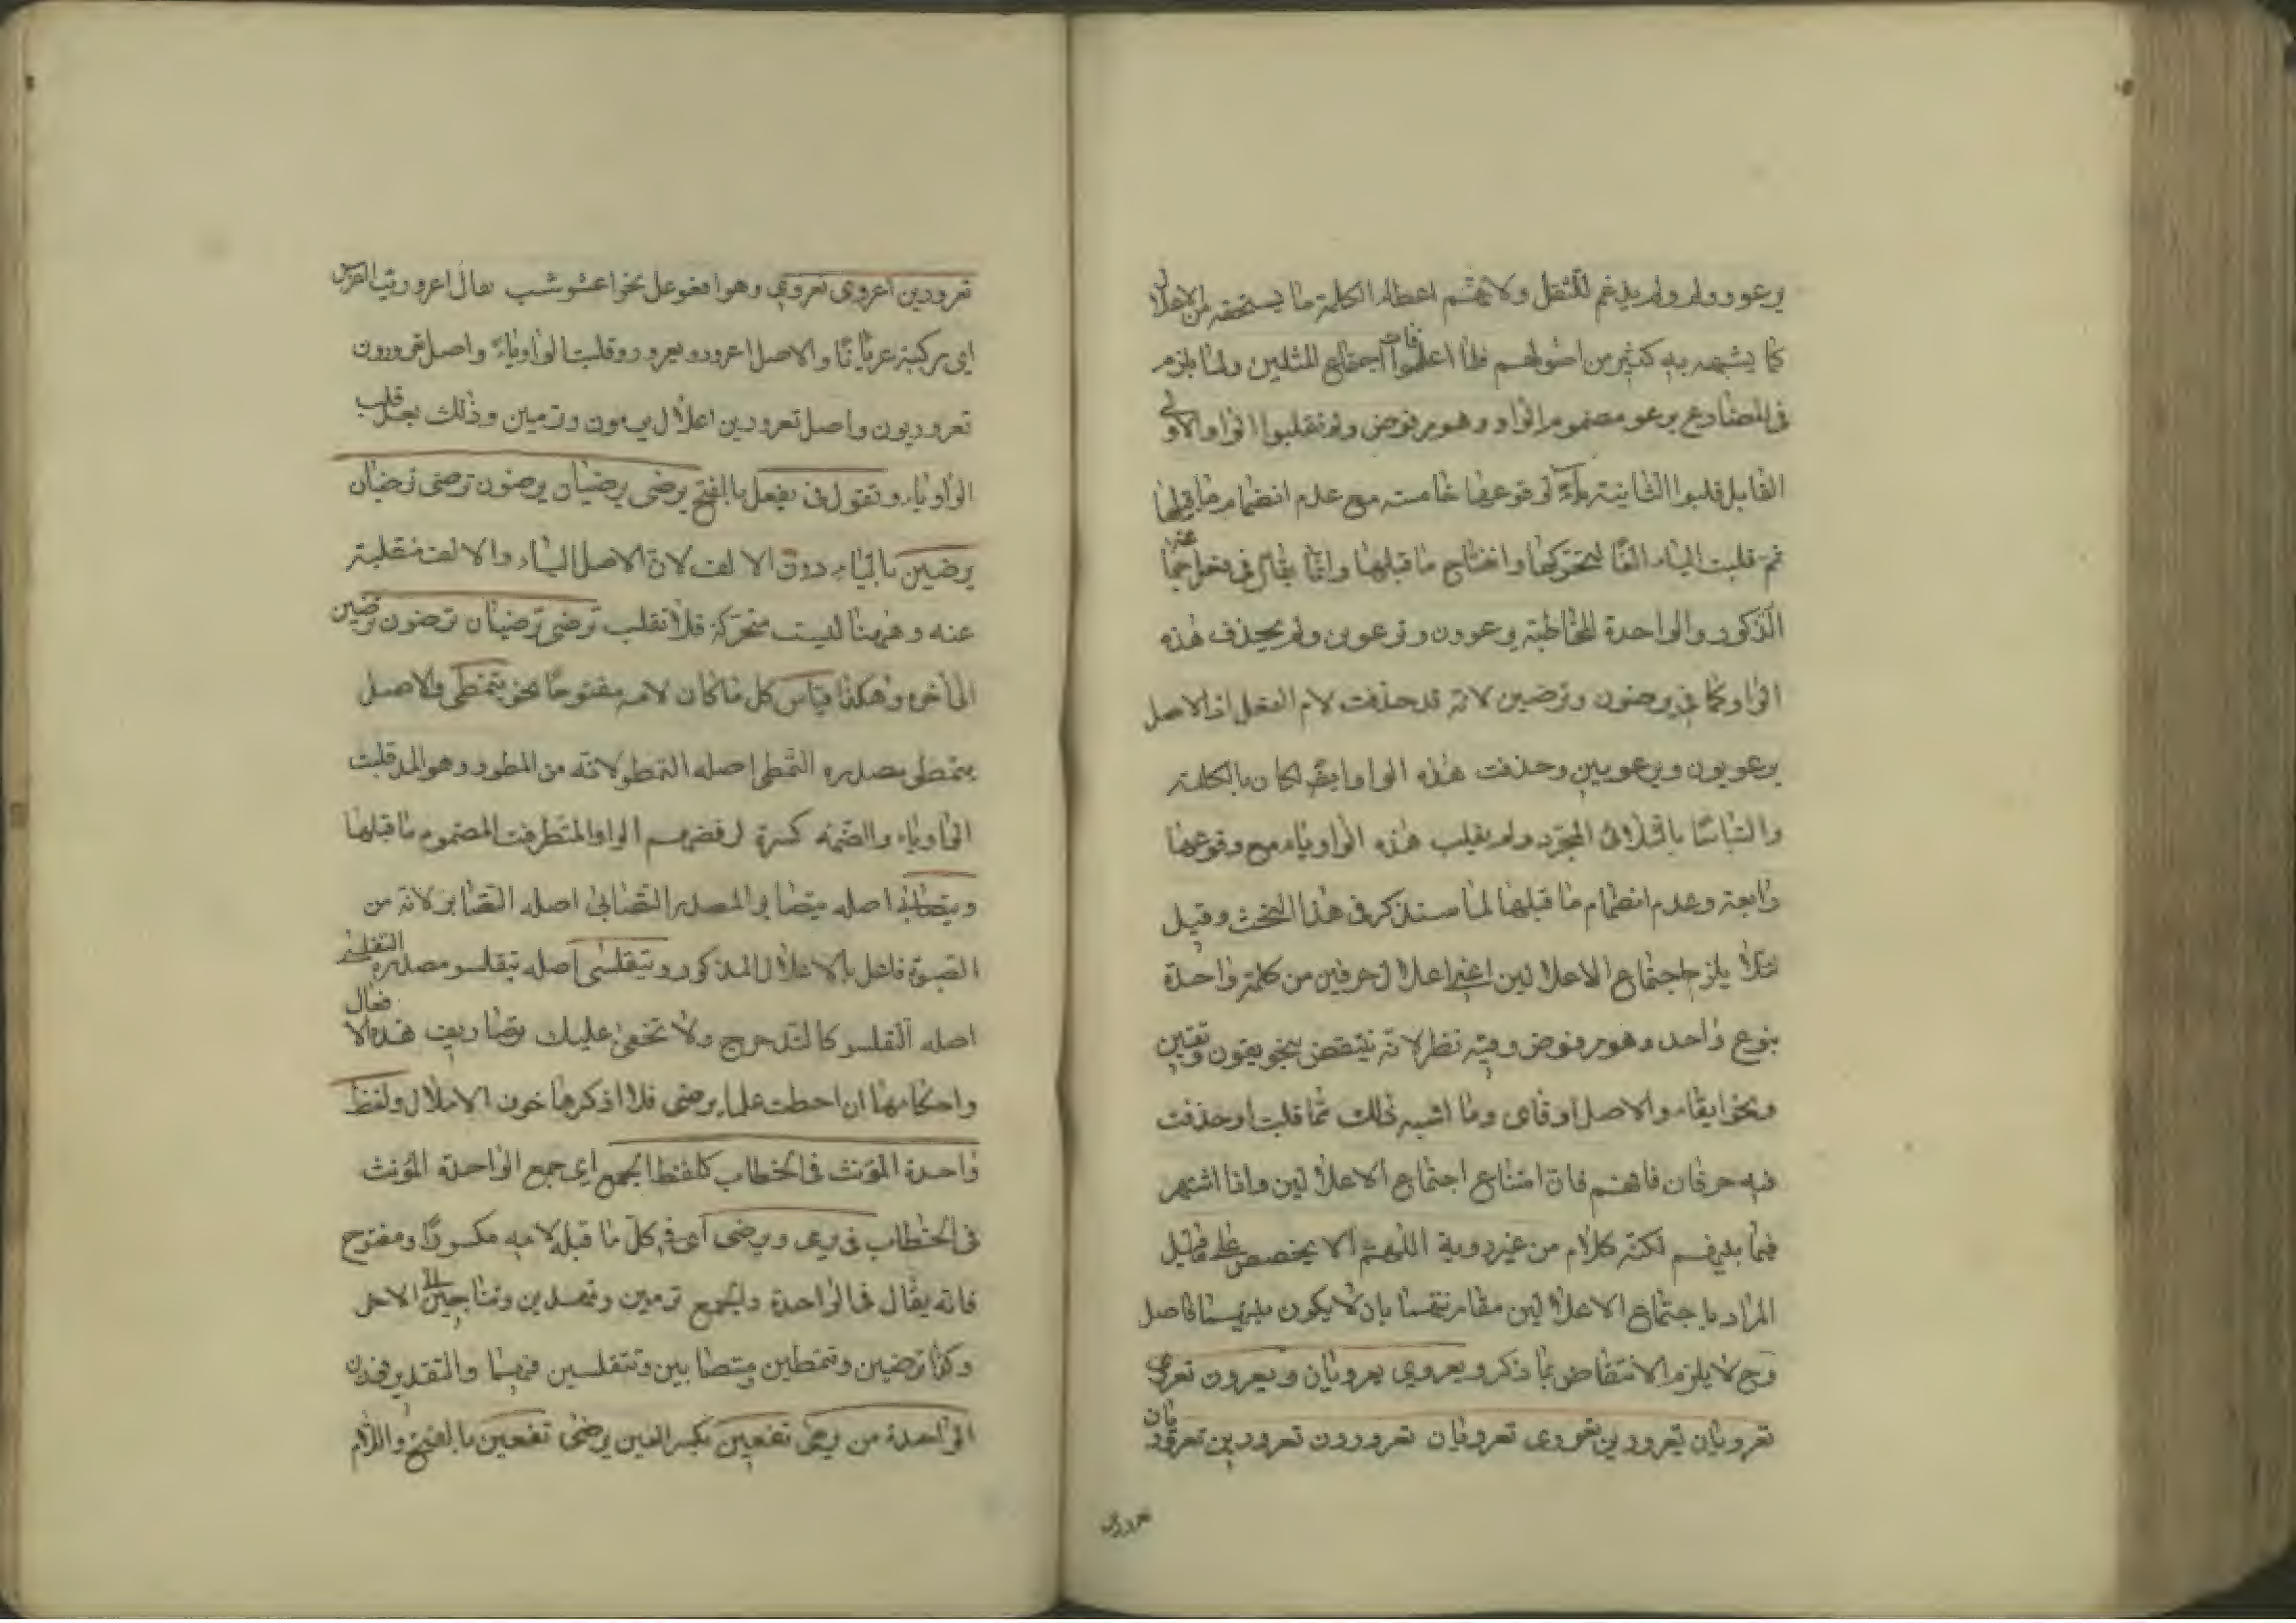 يرعوو ولم يدغم للثقل ولانهم اعطاء الكلمة ما يستحقه من الاعلال
كما يشهد به كثير من اصولهم فلما اعلوا فات اجتماع المثلين ولما يلزم
فى المضارع يرعو مضموم الواو وهو مرفوض ولم تقلبوا الواو الاولى
الفا بل قلبوا الثانية ياء لوقوعها خامسة مع عدم انضمام ما قبلها
ثم قلبت الياء الفا لتحركها وانفتاح ما قبلها وانما يقال فى فعل جماعة
الذكور والواحدة المخاطبة يرعوون وترعوين ولم يحذف هذه
الواو كما فى يرضون وترضين لانه قد حذفت لام الفعل اذ الاصل
يرعويون ويرعويين وحذفت هذه الواو ايضا لكان بالكلمة
والتباسا بالثلاثى المجرد ولم يقلب هذه الواو ياء مع وقوعها
رابعة وعدم انضمام ما قبلها لما سنذكر فى هذا البحث وقيل
لئلا يلزم اجتماع الاعلالين اعنى اعلال حرفين من كلمة واحدة
بنوع واحد وهو مرفوض وفيه نظر لانه ينتقض بنحو يقون وتقين
ونحو ايقاء والاصل اوقاى وما اشبه ذلك مما قلبت او حذفت
فيه حرفان فافهم فان امتناع اجتماع الاعلالين واذا اشتهر
فيما بينهم لكنه كلام من غير روية اللهم الا يخصص على ما قيل
المراد باجتماع الاعلالين تقاربهما بان لا يكون بينهما فاصل
وح لا يلزم الانتقاض بما ذكر ويعروى يعرويان ويعرون تعروى
تعرويان يعرورين تعرورى تعرويان تعرورون تعرورين تعروريان
تعرورين
تعرورين اعرورى نعرورى وهو افعوعل نحو اعشوشب يقال اعروريت الفرس
اى ركبته عريانا والاصل اعرورو يعرورو قلبت الواو ياء واصل تعرورون
تعروريون واصل تعرورين اعلال يرمون وترمين وذلك بعد قلب
الواو ياء وتقول فى يفعل بالفتح يرضى يرضيان يرضون ترضى ترضيان
يرضين بالياء دون الالف لان الاصل الياء والالف منقلبة
عنه وههنا ليست متحركة فلا تقلب ترضى ترضيان ترضون ترضين
الى اخره وهكذا قياس كل ما كان لامه مفتوحا نحو يتمطى والاصل
يتمطى مصدره التمطى اصله التمطو لانه من المطو وهو المد قلبت
الواو ياء والضمة كسرة لرفضهم الواو المتطرفة المضموم ما قبلها
ويتصابى اصله يتصابو المصدر التصابى اصله التصابو لانه من
الصبوة فاعل بالاعلال المذكور ويتقلسى اصله يتقلسو مصدره التقلسى
اصله التقلسو كالتدحرج ولا تخفى عليك تصاريف هذه الافعال
واحكامها ان احطت علما يرضى فلا اذكرها خوف الاملال ولفظ
واحدة المؤنث فى الخطاب كلفظ الجمع اى جمع الواحدة المؤنث
فى الخطاب فى يرمى ويرضى اى فى كل ما قبل لامه مكسورا ومفتوح
فانه يقال فى الواحدة والجمع ترمين وتهدين وتناجين الى الاخر
وكذا ترضين وتتمطين وتتصابين وتتقلسين فيهما والتقدير فوزن
الواحدة من يرمى تفعين بكسر العين يرضى تفعين بالفتح واللام